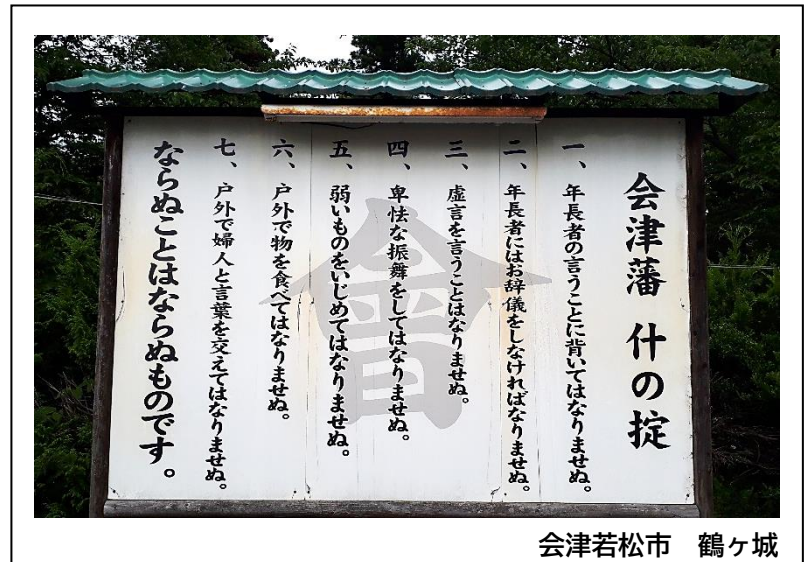 会津藩 什の掟
一、年長者の言うことに背いてはなりませぬ。
二、年長者にはお辞儀をしなければなりませぬ。
三、虚言を言うことはなりませぬ。
四、卑怯な振舞をしてはなりませぬ。
五、弱いものをいじめてはなりませぬ。
六、戸外で物を食べてはなりませぬ。
七、戸外で婦人と言葉を交えてはなりませぬ。
ならぬことはならぬものです。
會
会津若松市 鶴ヶ城